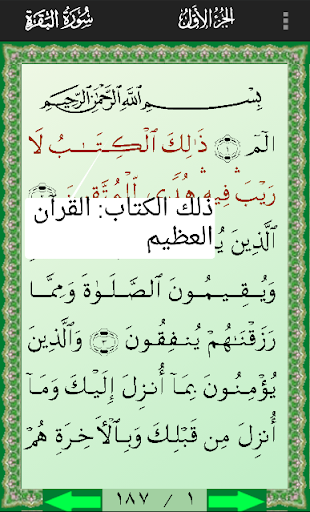 سُورَةُ البَقَرَةِ الجُزءُ الأَوَّلُ
بِسْمِ اللَّهِ الرَّحْمَٰنِ الرَّحِيمِ
الٓمٓ ١ ذَٰلِكَ الْكِتَـٰبُ لَا
رَيْبَ فِيهِ هُدًى لِّلْمُتَّقِينَ
ذلك الكتاب: القرآن
العظيم
الَّذِينَ
وَيُقِيمُونَ الصَّلَوٰةَ وَمِمَّا
رَزَقْنَـٰهُمْ يُنفِقُونَ ٣ وَالَّذِينَ
يُؤْمِنُونَ بِمَآ أُنزِلَ إِلَيْكَ وَمَآ
أُنزِلَ مِن قَبْلِكَ وَبِالْـَٔاخِرَةِ هُمْ
١٨٧ / ١